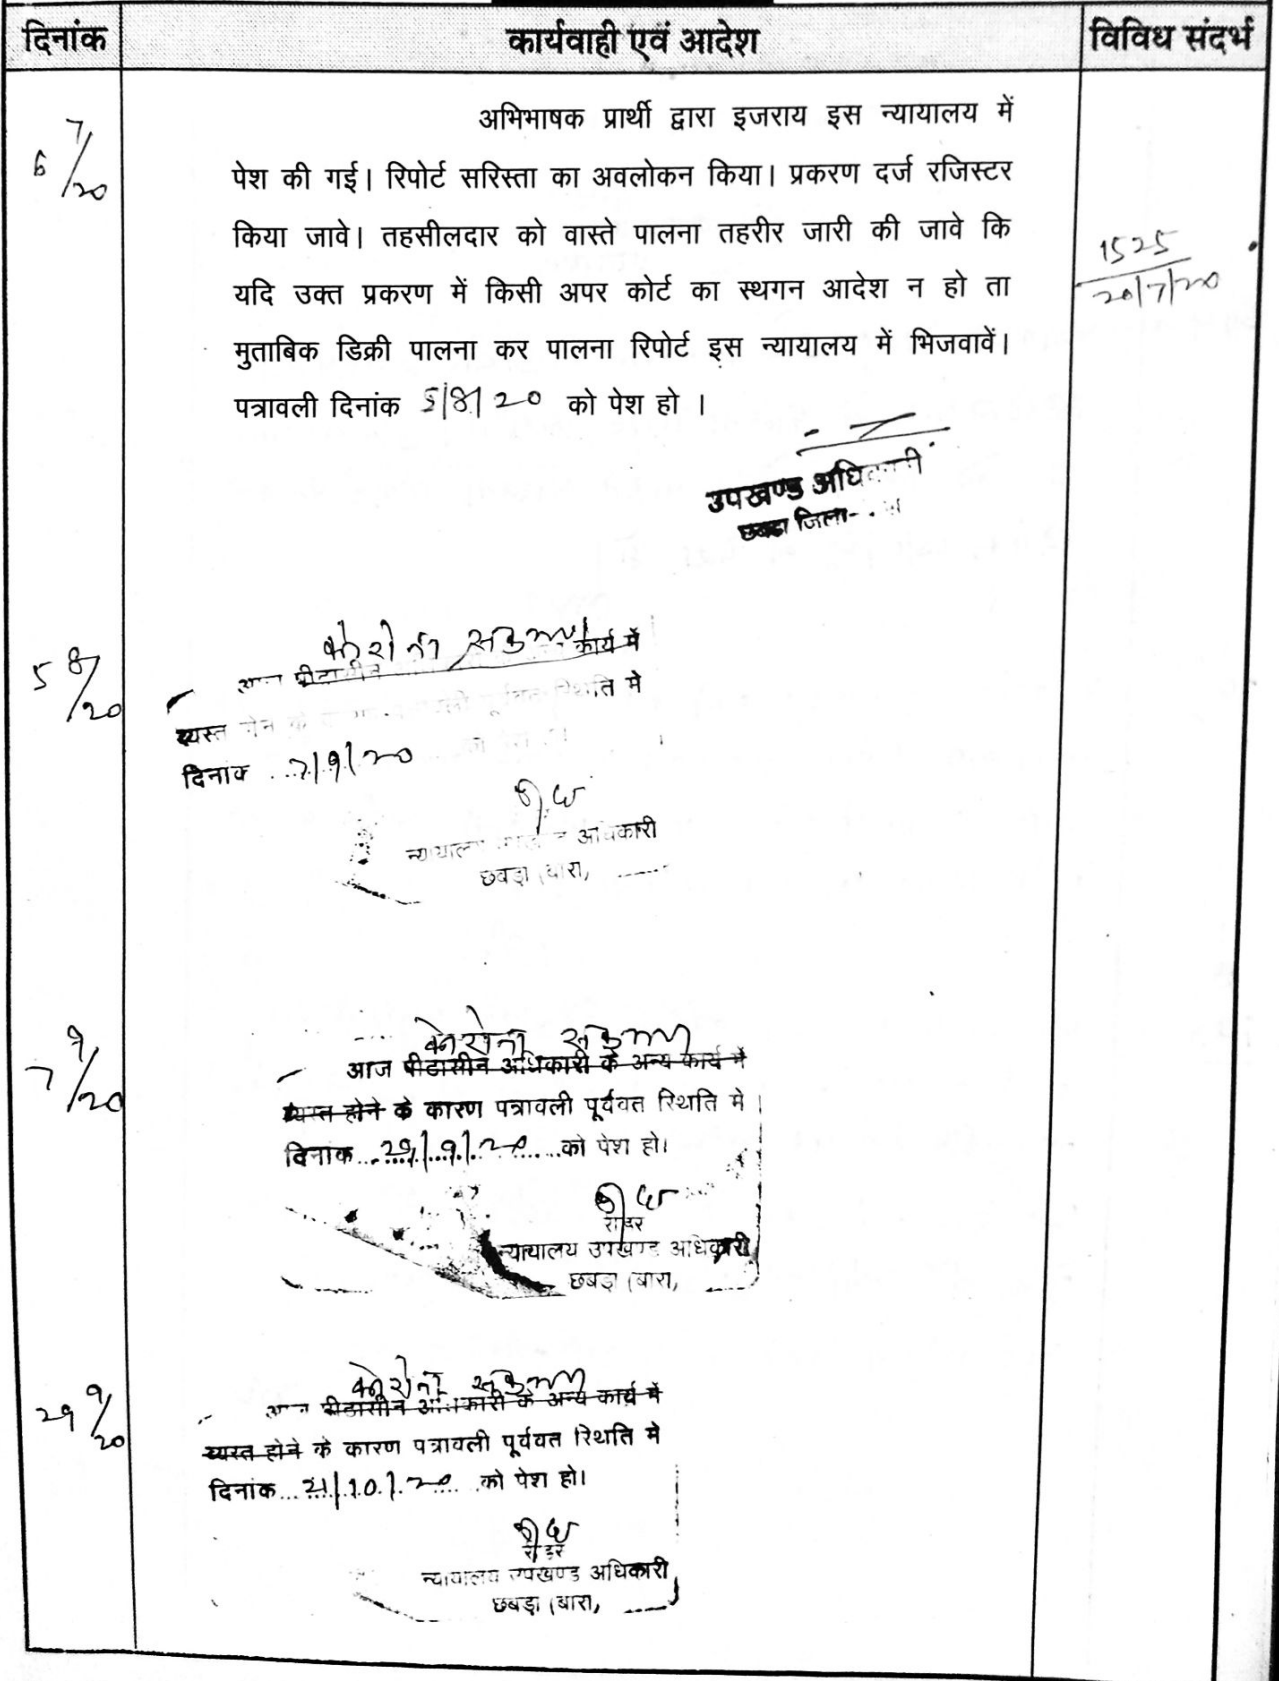 दिनांक
कार्यवाही एवं आदेश
विविध संदर्भ
6/7/20
अभिभाषक प्रार्थी द्वारा इजराय इस न्यायालय में
पेश की गई। रिपोर्ट सरिस्ता का अवलोकन किया। प्रकरण दर्ज रजिस्टर
किया जावे। तहसीलदार को वास्ते पालना तहरीर जारी की जावे कि
यदि उक्त प्रकरण में किसी अपर कोर्ट का स्थगन आदेश न हो ता
मुताबिक डिक्री पालना कर पालना रिपोर्ट इस न्यायालय में भिजवावें।
पत्रावली दिनांक 5/8/20 को पेश हो ।
1525
20/7/20
उपखण्ड अधिकारी
छबड़ा जिला-
5/8/20
कोरोना संक्रमण
आज पीठासीन कार्य में
व्यस्त होने के पूर्ववत स्थिति मे
दिनांक 7/9/20
न्यायालय अधिकारी
छबड़ा (बारा,
7/9/20
कोरोना संक्रमण
आज पीठासीन अधिकारी के अन्य कार्य में
व्यस्त होने के कारण पत्रावली पूर्ववत स्थिति मे
दिनांक...29/9/20...को पेश हो।
रीडर
न्यायालय उपखण्ड अधिकारी
छबड़ा (बारा,
29/9/20
कोरोना संक्रमण
आज पीठासीन अधिकारी के अन्य कार्य में
व्यस्त होने के कारण पत्रावली पूर्ववत स्थिति मे
दिनांक...21/10/20...को पेश हो।
रीडर
न्यायालय उपखण्ड अधिकारी
छबड़ा (बारा,